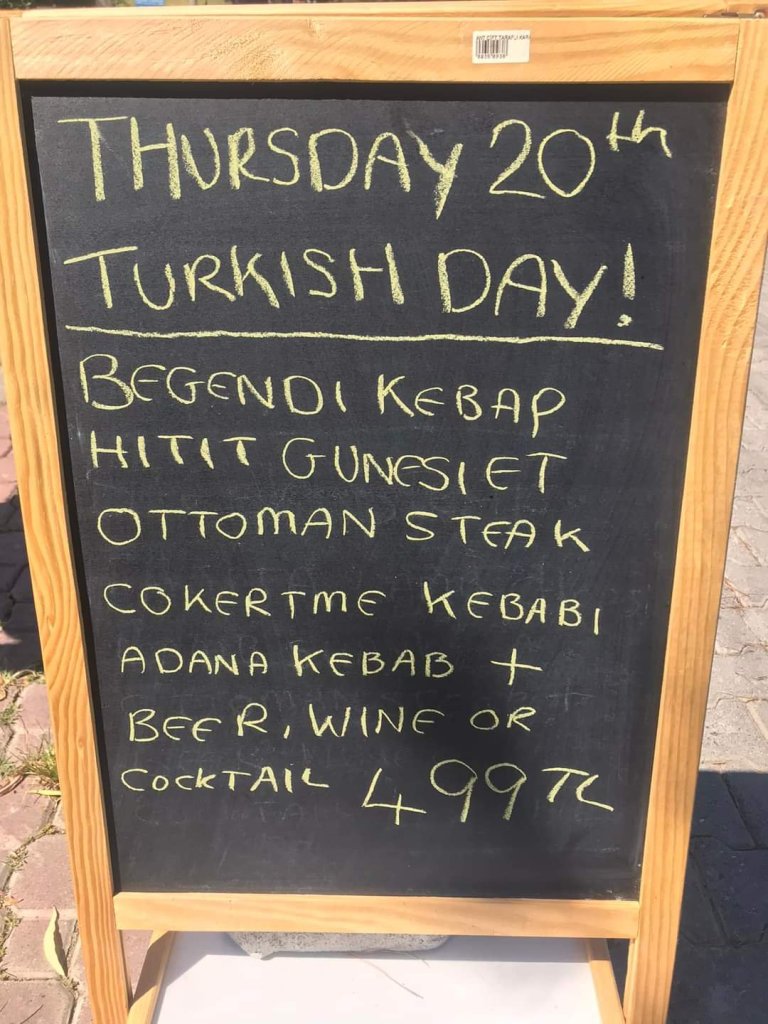 THURSDAY 20th
TURKISH DAY!
BEGENDI KEBAP
HITIT GUNESI ET
OTTOMAN STEAK
COKERTME KEBABI
ADANA KEBAB +
BEER, WINE OR
COCKTAIL 499 TL